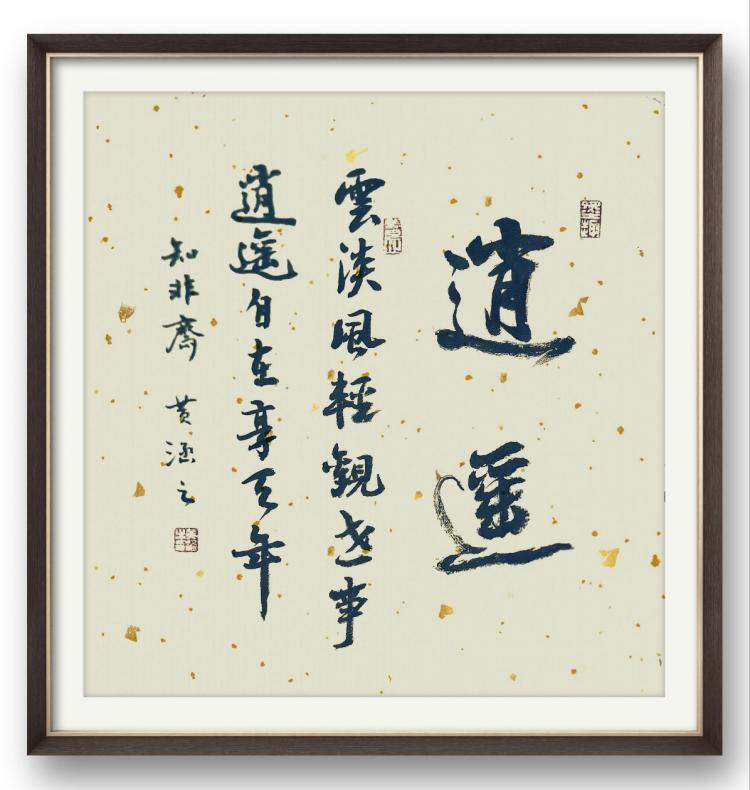 逍遥
雲淡風輕觀世事
逍遥自在享天年
知非齋 黄涵之